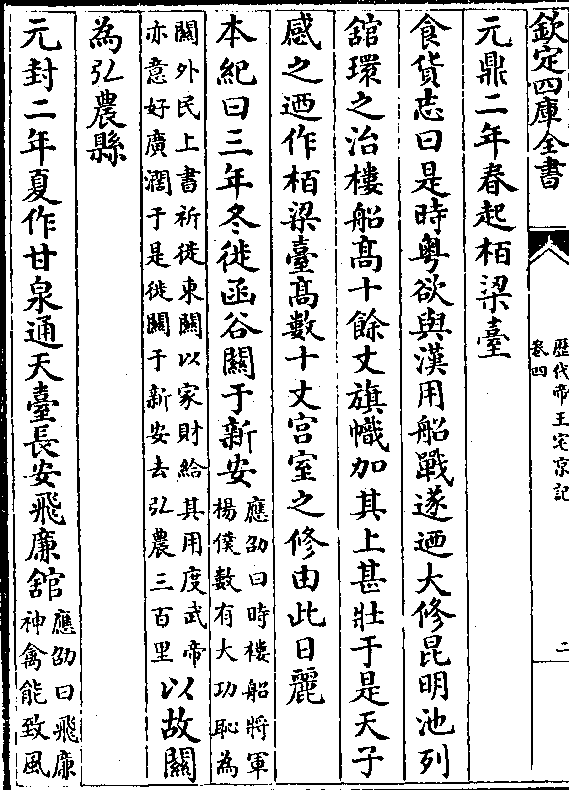 欽定四庫全書
歷代帝王宅京記
卷四
二
元鼎二年春起栢梁臺
食貨志曰是時粤欲與漢用船戰遂迺大修昆明池列
舘環之治樓船髙十餘丈旗幟加其上甚壯于是天子
感之迺作栢梁臺髙數十丈宫室之修由此日麗
本紀曰三年冬徙函谷關于新安
應劭曰時樓船將軍
楊僕數有大功恥為
關外民上書祈徙東關以家財給其用度武帝
亦意好廣濶于是徙關于新安去弘農三百里
以故關
為弘農縣
元封二年夏作甘泉通天臺長安飛廉舘
應劭曰飛廉
神禽能致風